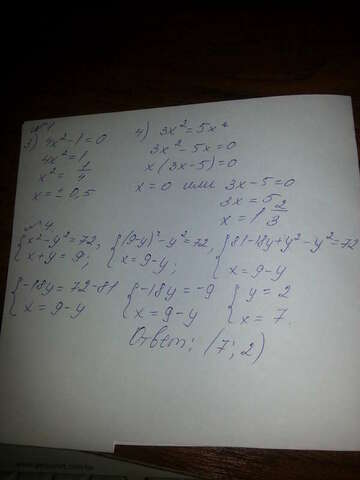 №1
3) 4x²-1=0
4x²=1
x²= 1/4
x=±0,5
4) 3x²=5x
3x²-5x=0
x(3x-5)=0
x=0 или 3x-5=0
3x=5
x=1 2/3
№4
{x²-y²=72, {(9-y)²-y²=72, {81-18y+y²-y²=72
{x+y=9; {x=9-y; {x=9-y
{-18y=72-81 {-18y=-9 {y=2
{x=9-y {x=9-y {x=7.
Ответ: (7; 2)